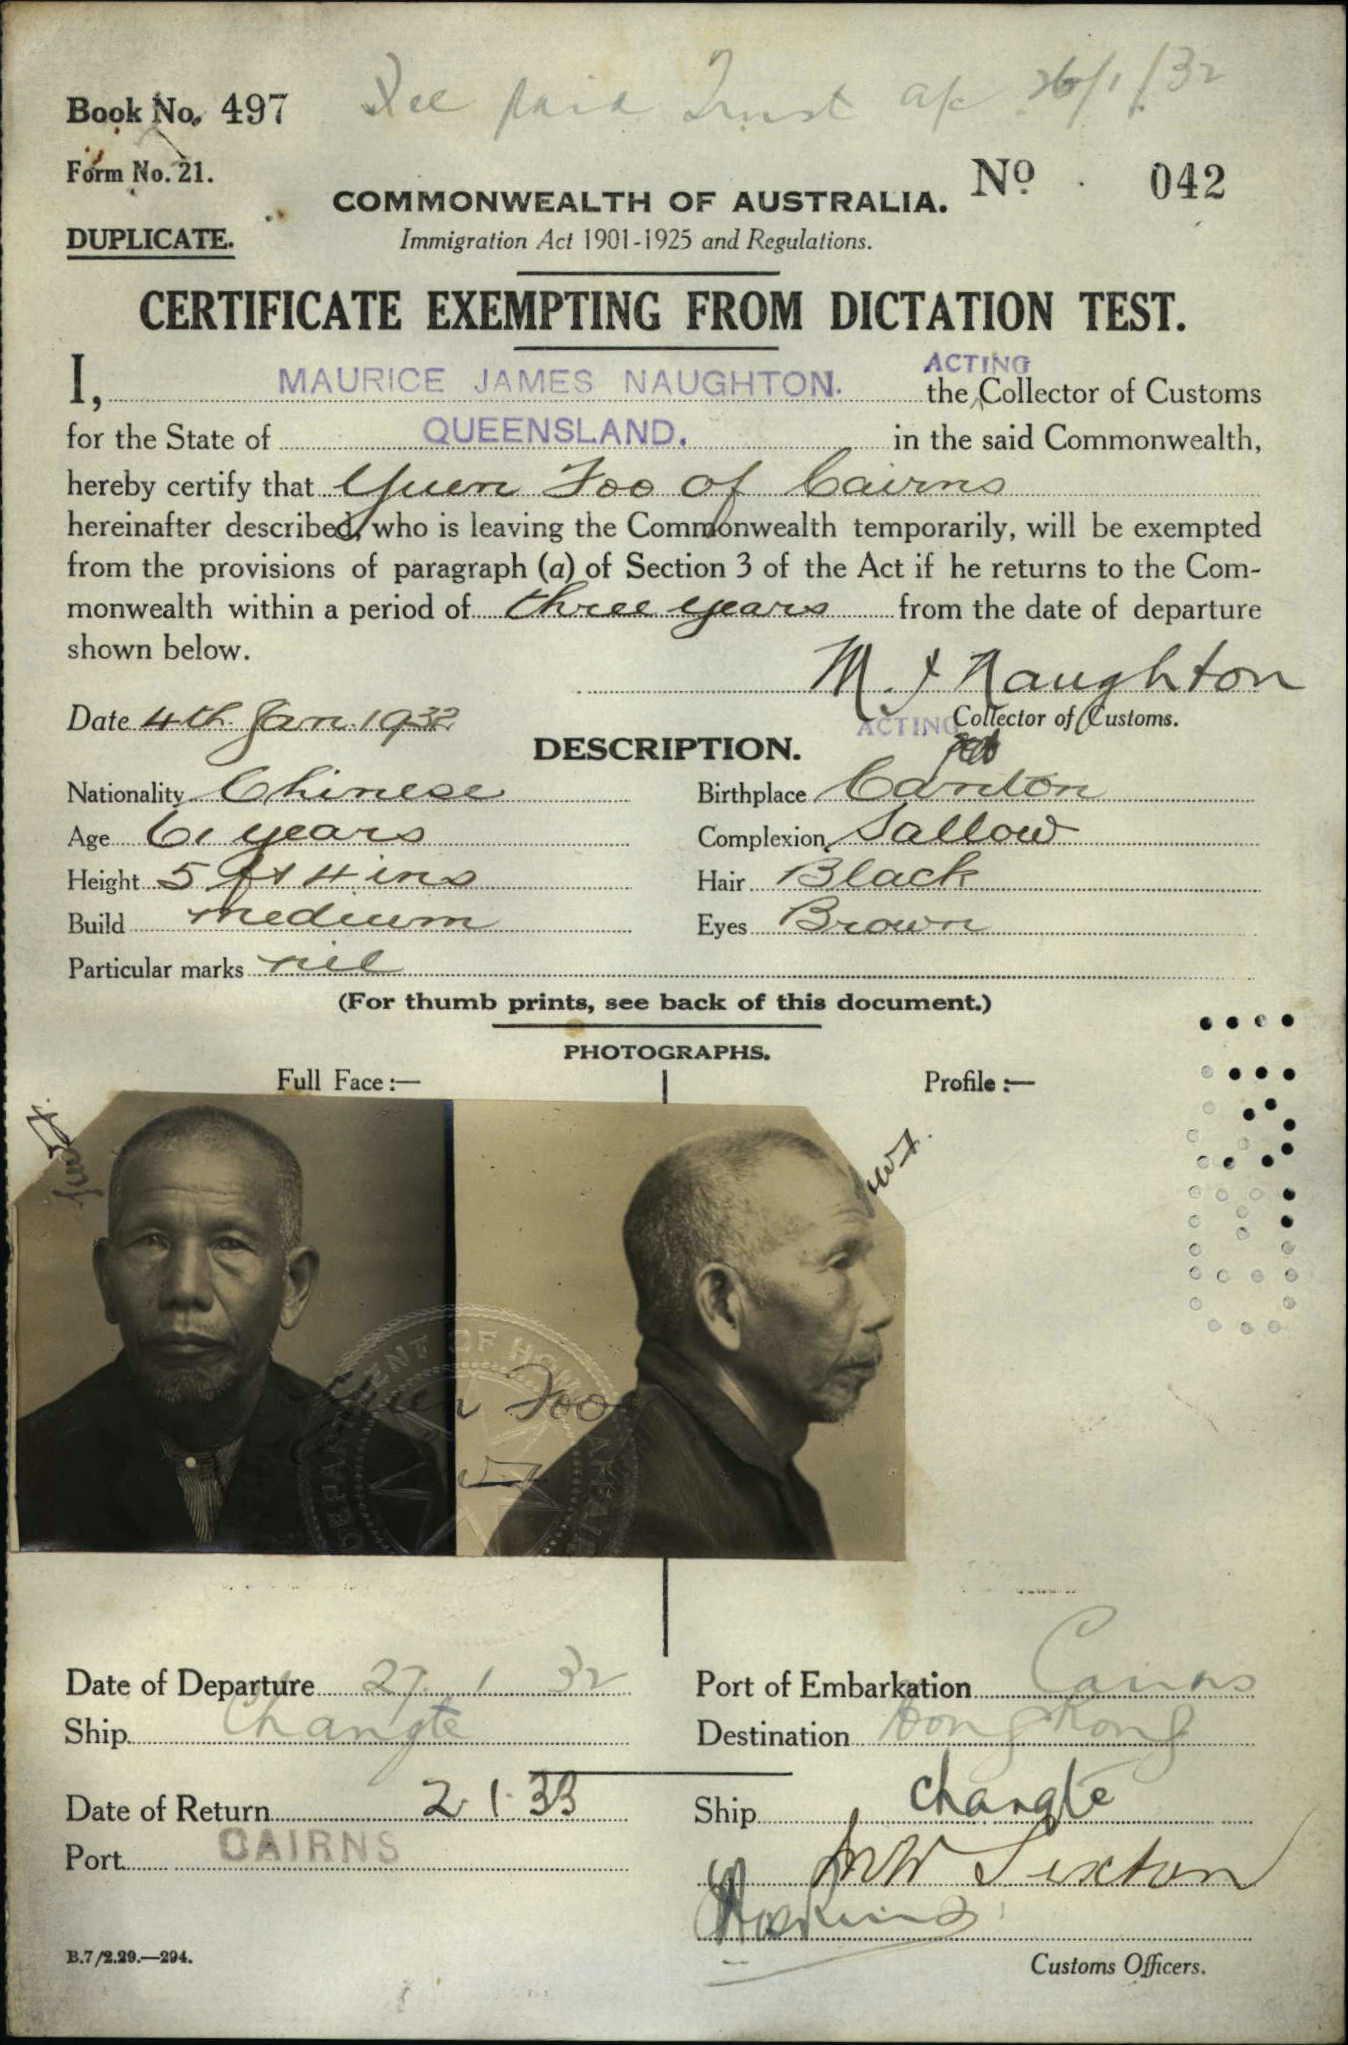 Book No. 497
Fee paid Trust a/c 26/1/32
Form No. 21.
No 042
COMMONWEALTH OF AUSTRALIA.
DUPLICATE.
Immigration Act 1901-1925 and Regulations.
CERTIFICATE EXEMPTING FROM DICTATION TEST.
I, MAURICE JAMES NAUGHTON. the ACTING Collector of Customs
for the State of QUEENSLAND. in the said Commonwealth,
hereby certify that Yuen Foo of Cairns
hereinafter described, who is leaving the Commonwealth temporarily, will be exempted
from the provisions of paragraph (a) of Section 3 of the Act if he returns to the Com-
monwealth within a period of three years from the date of departure
shown below.
M. J Naughton
Date 4th Jan. 1932
ACTING Collector of Customs.
DESCRIPTION.
Nationality Chinese
Birthplace Canton
Age 61 years
Complexion Sallow
Height 5 ft 4 ins
Hair Black
Build medium
Eyes Brown
Particular marks nil
(For thumb prints, see back of this document.)
PHOTOGRAPHS.
Full Face :—
Profile :—
DEPARTMENT OF HOME AFFAIRS
Yuen Foo
Date of Departure 27. 1 32
Port of Embarkation Cairns
Ship Changte
Destination Hong Kong
Date of Return 2. 1. 33
Ship Changte
Port CAIRNS
Sexton
Hoskins
B.7/2.29.—294.
Customs Officers.